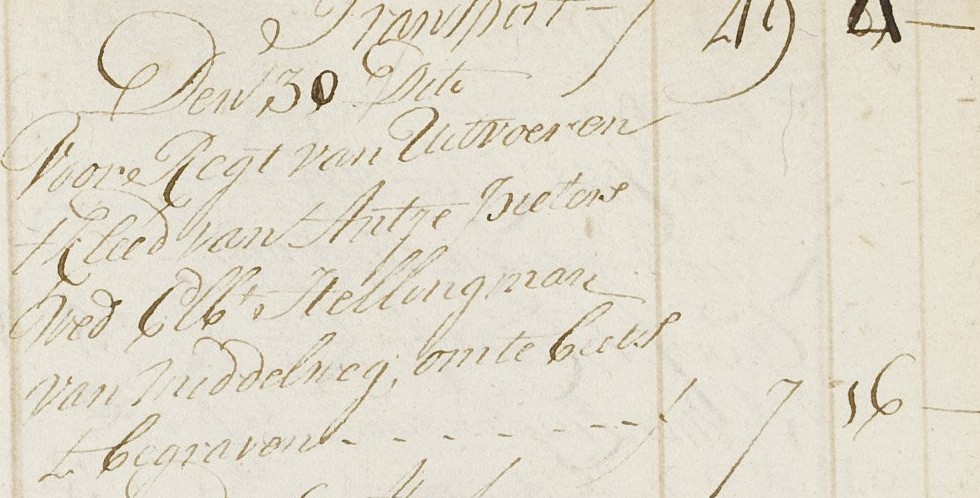 Transport - / 49 8 -
Den 30 Dito
Voor Regt van Uitvoeren
t Kleed van Antje Pieters
Wed Elbt Stellingman
van Middelweg, om te Beets
te begraven - - - - - - - / 7 16 -